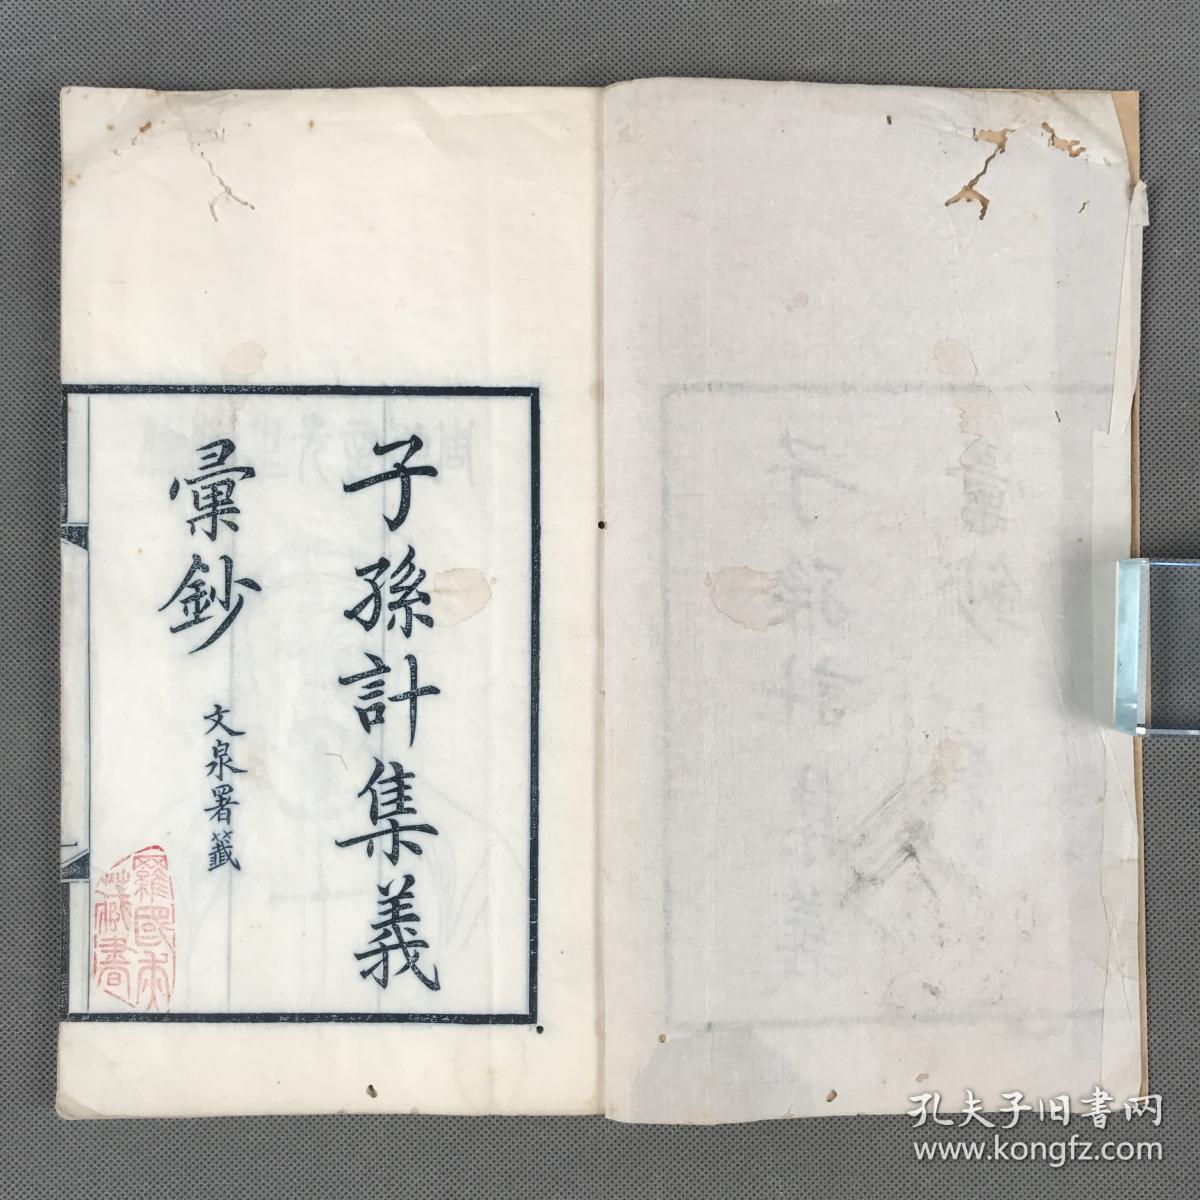 子孫計集義
彙鈔
文泉署籤
孔夫子旧書网
www.kongfz.com